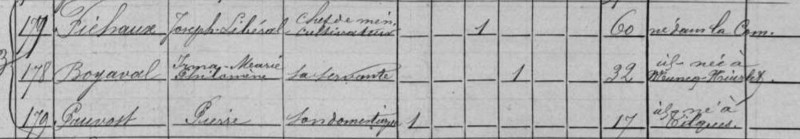 177 Fichaux Joseph-Libéral Chef de mén. cultivateur 1 60 né dans la Com.
178 Boyaval Marie Antoinine sa servante 1 32 id née à
179 Pauvost Pierre son domestique 1 17 id né à Tilques